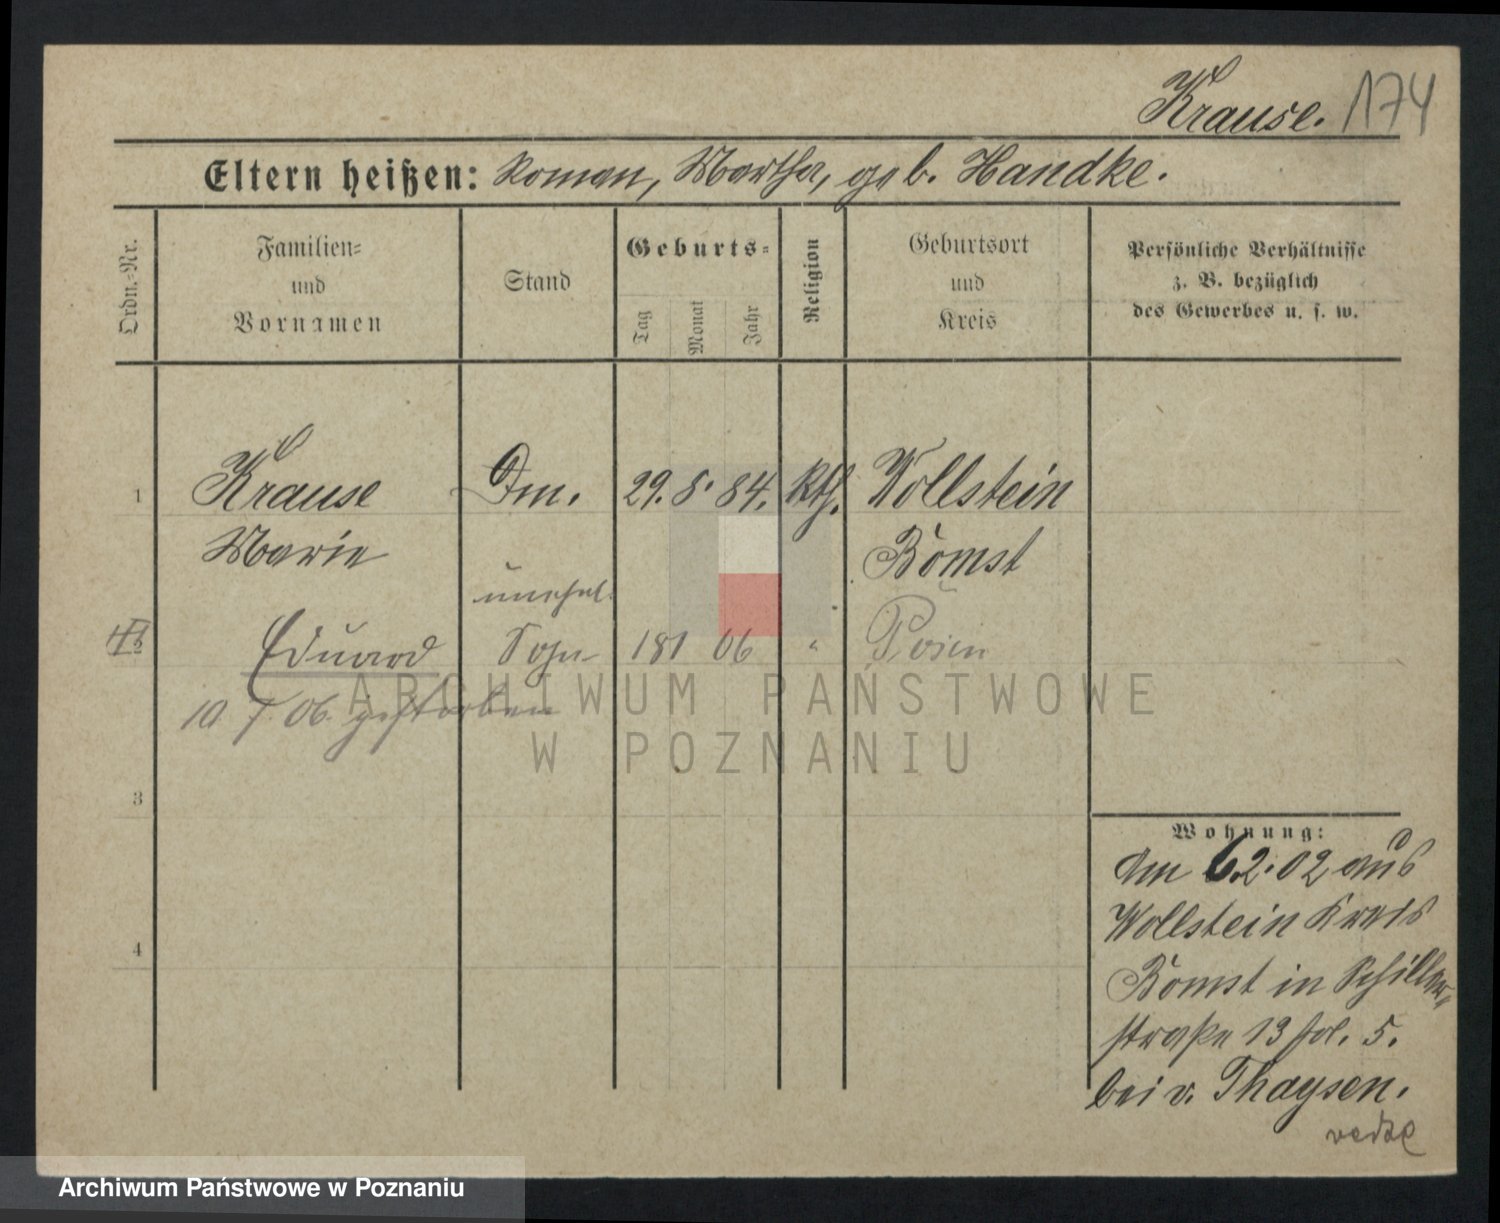 Krause. 174
Eltern heißen: Roman, Martha, geb. Handke.
Ordn.-Nr.
Familien-
und
Vornamen
Stand
Geburts-
Tag
Monat
Jahr
Religion
Geburtsort
und
Kreis
Persönliche Verhältnisse
z. B. bezüglich
des Gewerbes u. s. w.
1 Krause Dm. 29. 8. 84. kth. Wollstein
Marie Bomst
unehel.
2 Eduard Sohn 18 1 06 " Posen
10 7. 06. gestorben
ARCHIWUM PAŃSTWOWE
W POZNANIU
3
4
Wohnung:
Am 6.2.02 aus
Wollstein Kreis
Bomst in Schiller-
straße 13 fol. 5.
bei v. Thaysen.
Archiwum Państwowe w Poznaniu